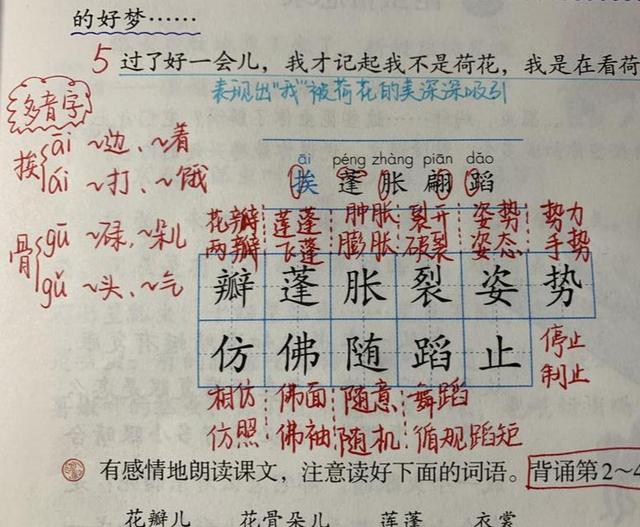 的好梦……
5 过了好一会儿，我才记起我不是荷花，我是在看荷
表现出“我”被荷花的美深深吸引
多音字
挨 āi ~边、~着
ái ~打、~饿
骨 gū ~碌、~朵儿
gǔ ~头、~气
āi péng zhàng piān dǎo
挨 蓬 胀 翩 蹈
花瓣 莲蓬 肿胀 裂开 姿势 势力
两瓣 飞蓬 膨胀 破裂 姿态 手势
瓣 蓬 胀 裂 姿 势
仿 佛 随 蹈 止 停止
制止
相仿 佛面 随意 舞蹈
仿照 佛袖 随机 循规蹈矩
有感情地朗读课文，注意读好下面的词语。 背诵第2~4
花瓣儿 花骨朵儿 莲蓬 衣裳